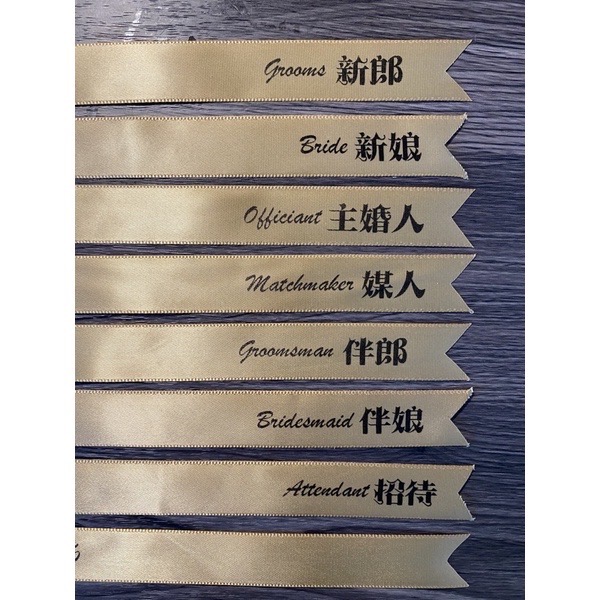 Grooms 新郎
Bride 新娘
Officiant 主婚人
Matchmaker 媒人
Groomsman 伴郎
Bridesmaid 伴娘
Attendant 招待